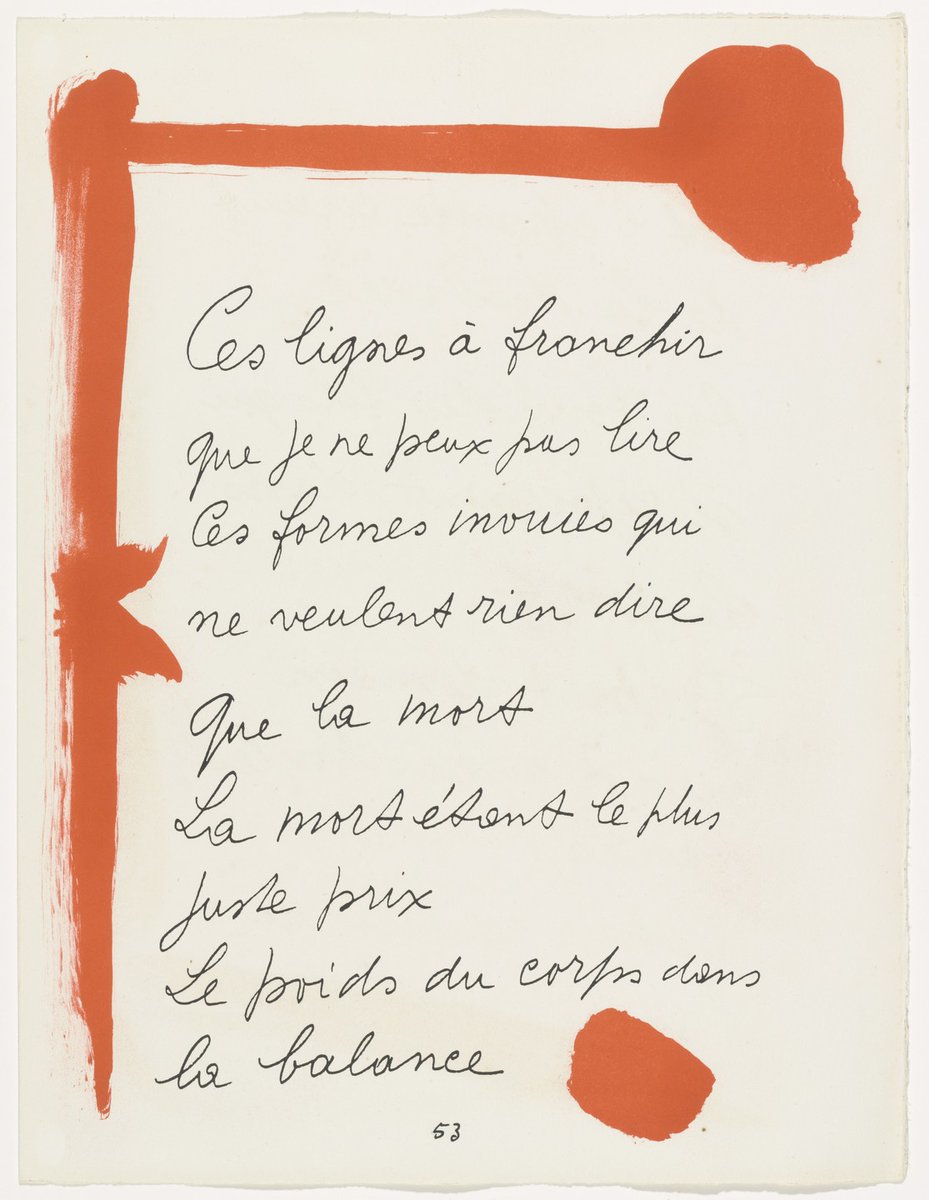 Ces lignes à franchir
que je ne peux pas lire
Ces formes inouies qui
ne veulent rien dire
Que la mort
La mort étant le plus
juste prix
Le poids du corps dans
la balance
53